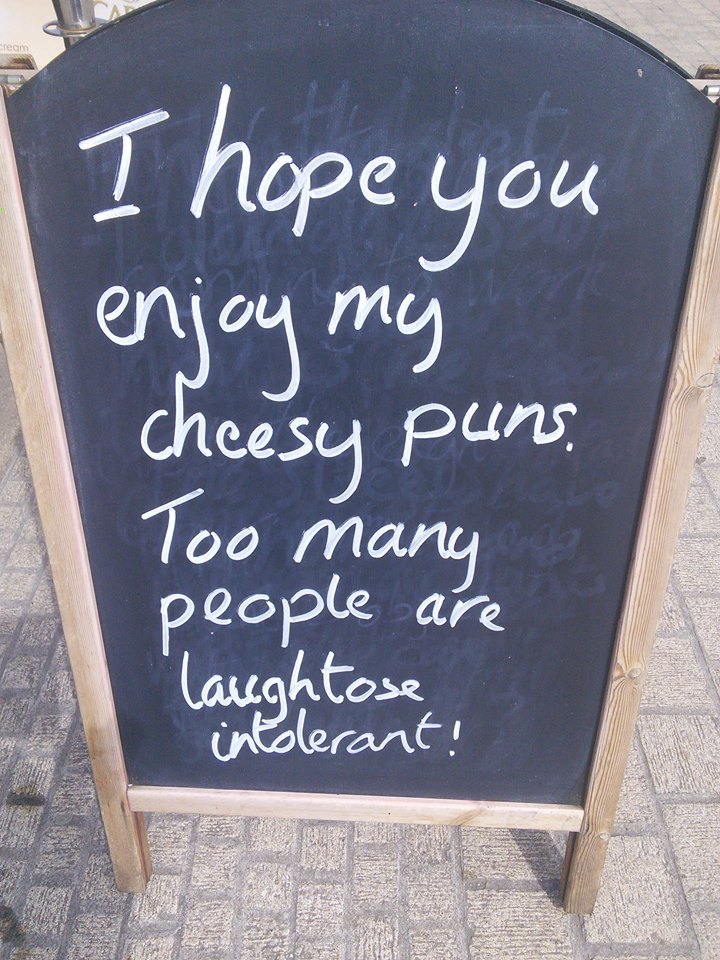 cream
I hope you
enjoy my
cheesy puns.
Too many
people are
laughtose
intolerant!